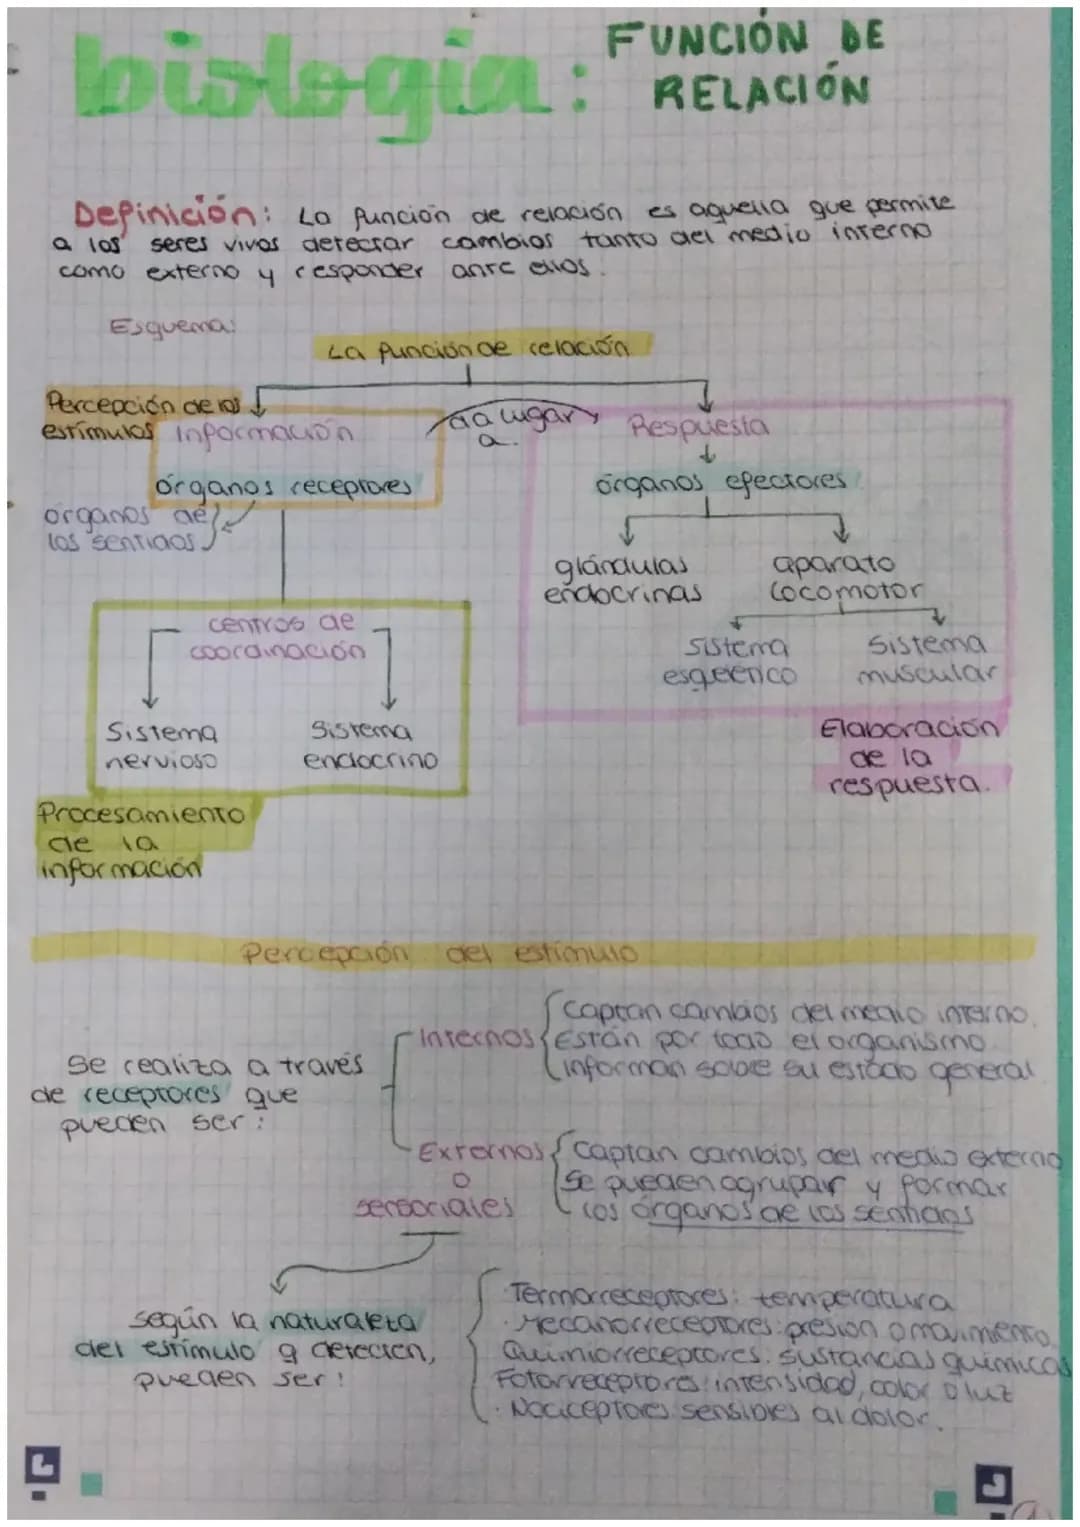 biología: FUNCIÓN DE
RELACIÓN
Definición: La función de relación es aquella que permite
a los seres vivos detectar cambios tanto del medio interno
como externo y responder ante ellos.
Esquema:
La función de relación
Percepción de los
estímulos
Información
órganos receptores
órganos de
los sentidos
da lugar
a.
Respuesta
órganos efectores
glándulas
endocrinas
aparato
locomotor
sistema
esquelético
sistema
muscular
Elaboración
de la
respuesta.
centros de
coordinación
Sistema
nervioso
Sistema
endocrino
Procesamiento
de la
información
Percepción del estímulo
Se realiza a través
de receptores que
pueden ser:
Internos
Captan cambios del medio interno.
Están por todo el organismo
informan sobre su estado general
Externos
o
sensoriales
Captan cambios del medio externo
Se pueden agrupar y formar
los órganos de los sentidos
según la naturaleza
del estímulo q detecten,
pueden ser:
Termorreceptores: temperatura
· Mecanorreceptores: presión o movimiento.
Quimiorreceptores: sustancias químicas
Fotorreceptores: intensidad, color o luz
· Nociceptores: sensibles al dolor.